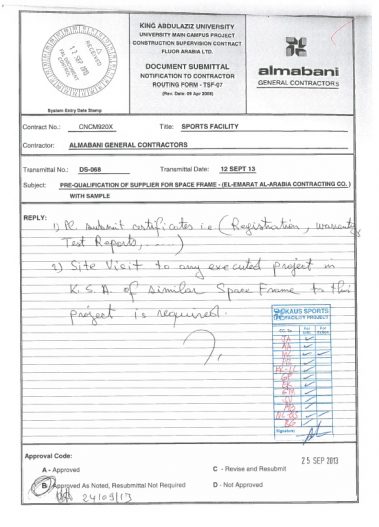 KING ABDULAZIZ UNIVERSITY
UNIVERSITY MAIN CAMPUS PROJECT
CONSTRUCTION SUPERVISION CONTRACT
FLUOR ARABIA LTD.
DOCUMENT SUBMITTAL
NOTIFICATION TO CONTRACTOR
ROUTING FORM - TSF-07
(Rev. Date: 09 Apr 2008)
RECEIVED
12 SEP 2013
System Entry Date Stamp
almabani
GENERAL CONTRACTORS
Contract No.: CNCM920X Title: SPORTS FACILITY
Contractor: ALMABANI GENERAL CONTRACTORS
Transmittal No.: DS-068 Transmittal Date: 12 SEPT 13
Subject: PRE-QUALIFICATION OF SUPPLIER FOR SPACE FRAME - (EL-EMARAT AL-ARABIA CONTRACTING CO. )
WITH SAMPLE
REPLY:
1) Pl. submit certificates i.e (Registration, warranty,
Test Reports, ....)
2) Site Visit to any executed project in
K.S.A of similar Space Frame to this
project is required.
KAUS SPORTS
FACILITY PROJECT
Signature:
Approval Code:
25 SEP 2013
A - Approved C - Revise and Resubmit
B - Approved As Noted, Resubmittal Not Required D - Not Approved
24/09/13